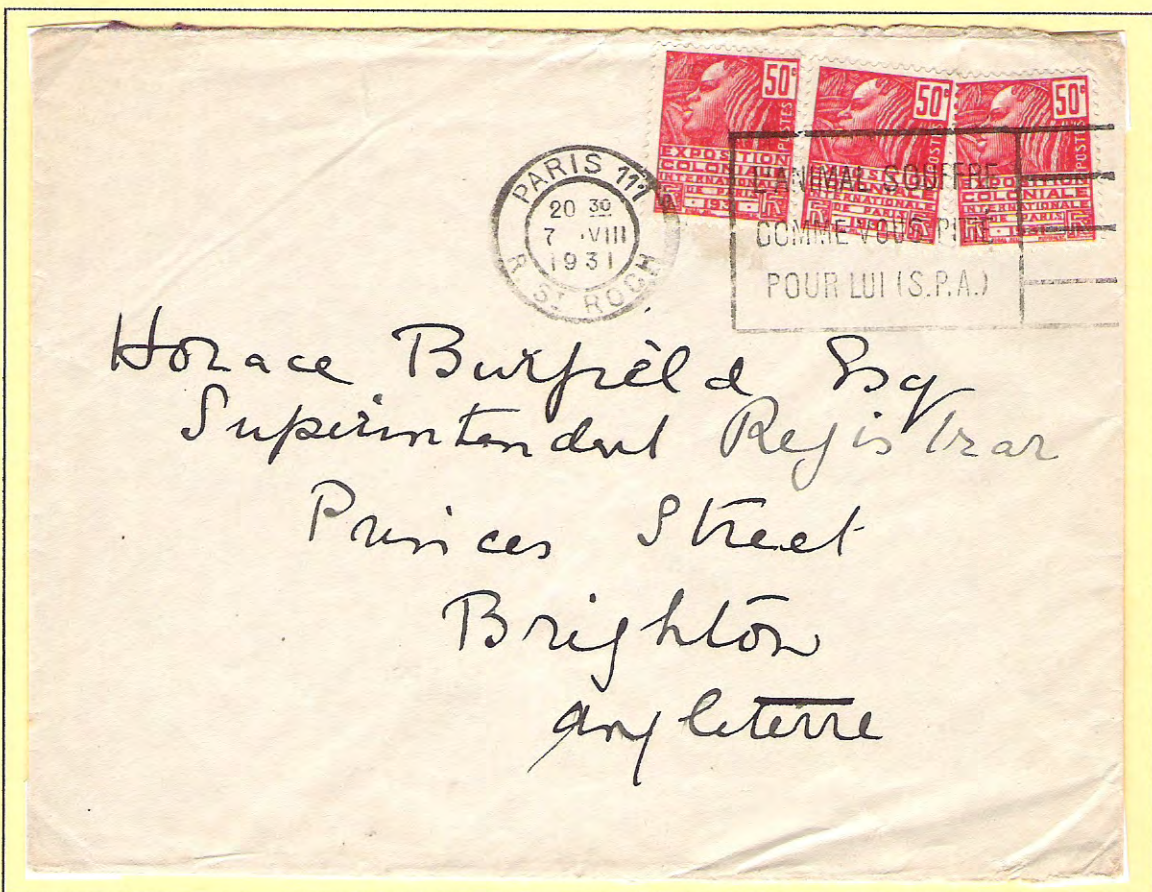 50c
EXPOSITION
COLONIALE
INTERNATIONALE
DE PARIS
1931
POSTES
RF
50c
POSTES
RF
50c
POSTES
EXPOSITION
COLONIALE
INTERNATIONALE
DE PARIS
1931
RF
PARIS 111
20 30
7 VIII
1931
R. ST ROCH
L'ANIMAL SOUFFRE
COMME VOUS PITIÉ
POUR LUI (S.P.A.)
Horace Burfield Esq
Superintendent Registrar
Princes Street
Brighton
Angleterre